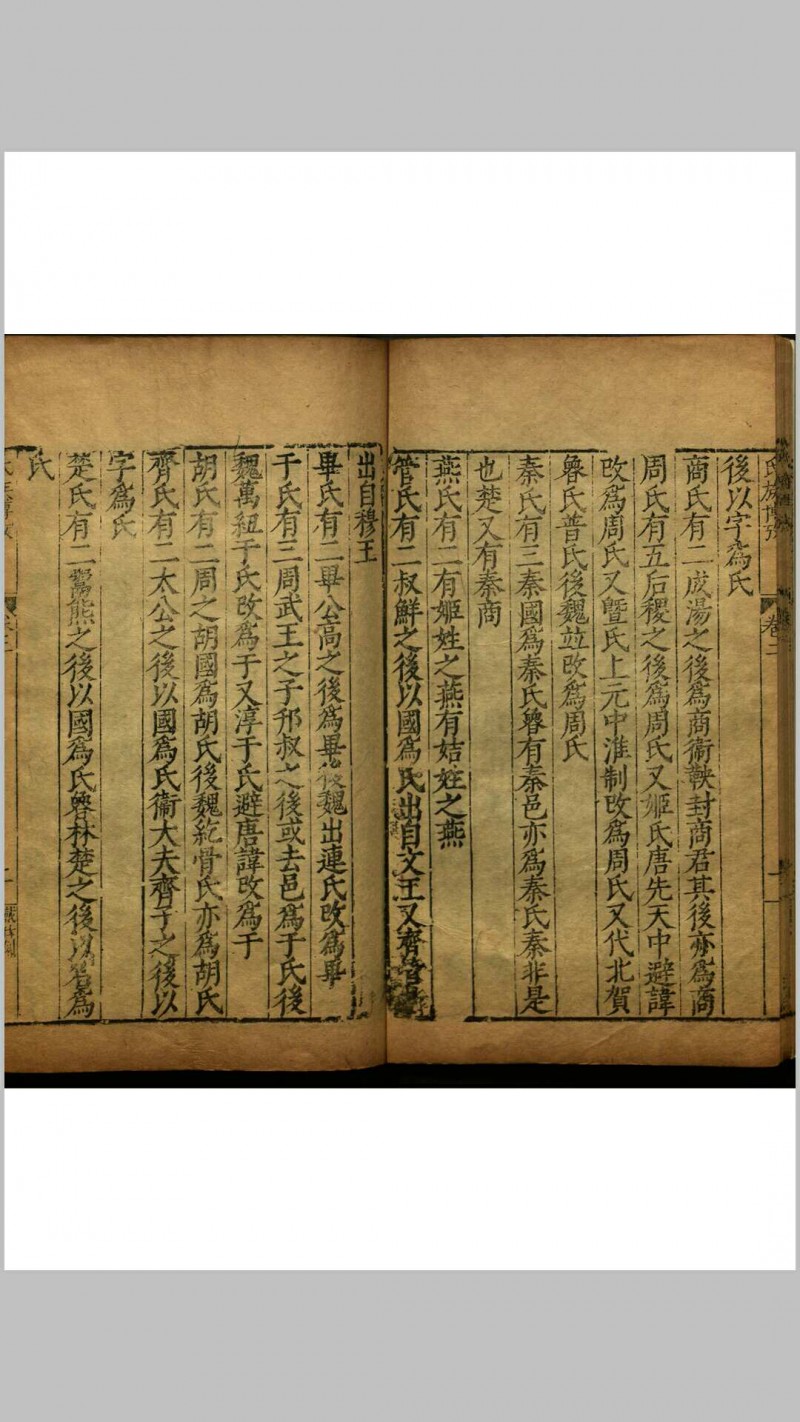 氏族博攷
卷二
後以字爲氏
商氏有二成湯之後爲商衞鞅封商君其後亦爲商
周氏有五后稷之後爲周氏又姬氏唐先天中避諱
改爲周氏又曁氏上元中淮制改爲周氏又代北賀
魯氏普氏後魏竝改爲周氏
秦氏有三秦國爲秦氏魯有秦邑亦爲秦氏秦非是
也楚又有秦商
燕氏有二有姬姓之燕有姞姓之燕
管氏有二叔鮮之後以國爲氏出自文王又齊管
出自穆王
畢氏有二畢公高之後爲畢後魏出連氏改爲畢
于氏有三周武王之子邘叔之後或去邑爲于氏後
魏萬紐于氏改爲于又淳于氏避唐諱改爲于
胡氏有二周之胡國爲胡氏後魏紇骨氏亦爲胡氏
齊氏有二太公之後以國爲氏衞大夫齊子之後以
字爲氏
楚氏有二鬻熊之後以國爲氏魯林楚之後以名爲
氏